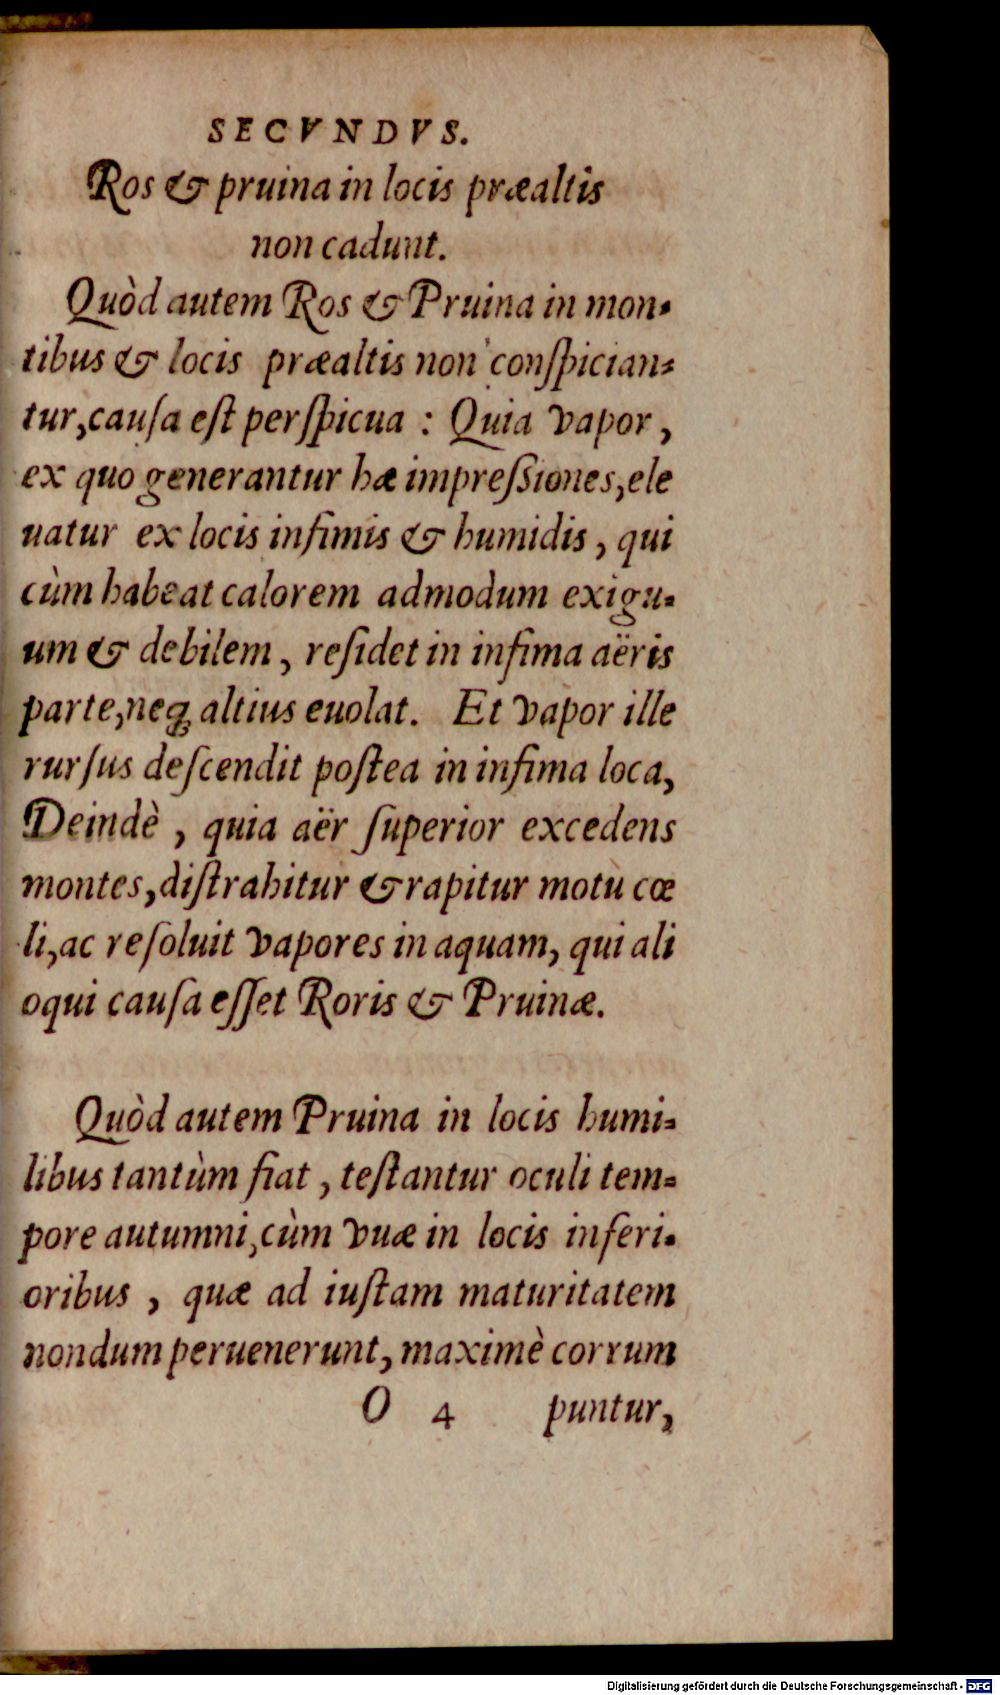 SECVNDVS.
Ros & pruina in locis præaltis
non cadunt.
Quòd autem Ros & Pruina in mon-
tibus & locis præaltis non conſpician-
tur, cauſa eſt perſpicua : Quia vapor,
ex quo generantur hæ impreſsiones, ele
uatur ex locis infimis & humidis, qui
cùm habeat calorem admodum exigu-
um & debilem, reſidet in infima aëris
parte, neq; altius euolat. Et vapor ille
rurſus deſcendit poſtea in infima loca,
Deindè, quia aër ſuperior excedens
montes, diſtrahitur & rapitur motu cœ
li, ac reſoluit vapores in aquam, qui ali
oqui cauſa eſſet Roris & Pruinæ.
Quòd autem Pruina in locis humi-
libus tantùm fiat, teſtantur oculi tem-
pore autumni, cùm vuæ in locis inferi-
oribus, quæ ad iuſtam maturitatem
nondum peruenerunt, maximè corrum
O 4 puntur,
Digitalisierung gefördert durch die Deutsche Forschungsgemeinschaft - DFG